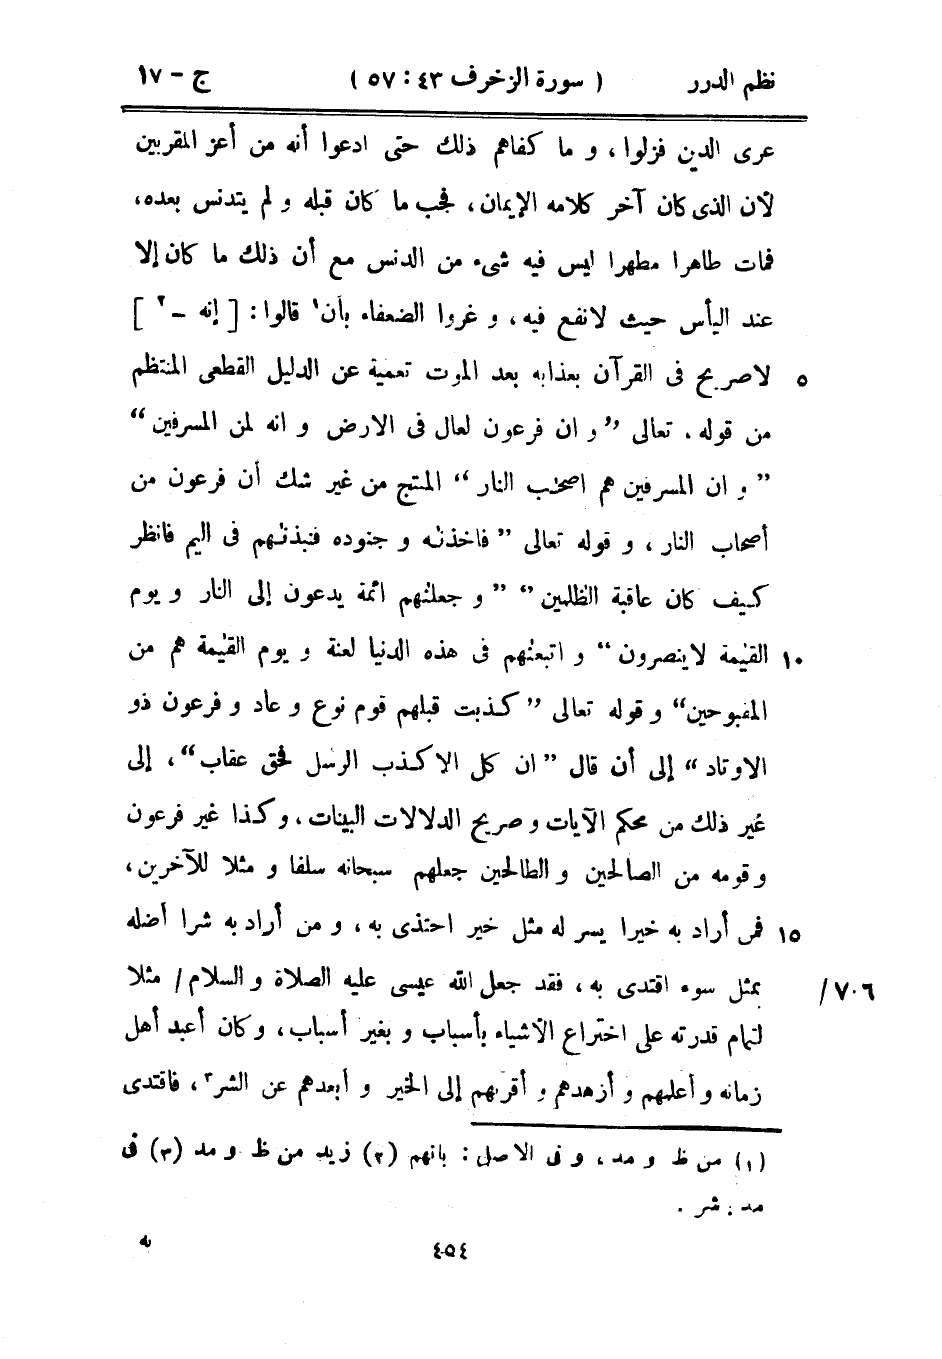 نظم الدرر ( سورة الزخرف ٤٣ : ٥٧ ) ج – ١٧
عرى الدين فزلوا ، و ما كفاهم ذلك حتى ادعوا أنه من أعز المقربين
لأن الذى كان آخر كلامه الإيمان ، فجب ما كان قبله و لم يتدنس بعده ،
فمات طاهرا مطهرا ليس فيه شىء من الدنس مع أن ذلك ما كان إلا
عند اليأس حيث لانفع فيه ، و غروا الضعفاء بأن١ قالوا : [ إنه – ٢ ]
٥ لاصريح فى القرآن بعذابه بعد الموت تعمية عن الدليل القطعى المنتظم
من قوله تعالى ” و ان فرعون لعال فى الارض و انه لمن المسرفين “
” و ان المسرفين هم اصحٰب النار “ المنتج من غير شك أن فرعون من
أصحاب النار ، و قوله تعالى ” فاخذنٰه و جنوده فنبذنٰهم فى اليم فانظر
كيف كان عاقبة الظٰلمين “ ” و جعلنٰهم ائمة يدعون إلى النار و يوم
١٠ القيٰمة لاينصرون “ و اتبعنٰهم فى هذه الدنيا لعنة و يوم القيٰمة هم من
المقبوحين “ و قوله تعالى ” كذبت قبلهم قوم نوع و عاد و فرعون ذو
الاوتاد “ إلى أن قال ” ان كل الا كذب الرسل فحق عقاب “ ، إلى
غير ذلك من محكم الآيات و صريح الدلالات البينات ، و كذا غير فرعون
و قومه من الصالحين و الطالحين جعلهم سبحانه سلفا و مثلا للآخرين ،
١٥ فمن أراد به خيرا يسر له مثل خير احتذى به ، و من أراد به شرا أضله
بمثل سوء اقتدى به ، فقد جعل الله عيسى عليه الصلاة و السلام / مثلا ٧٠٦/
لتمام قدرته على اختراع الأشياء بأسباب و بغير أسباب ، و كان أعبد أهل
زمانه و أعلمهم و أزهدهم و أقربهم إلى الخير و أبعدهم عن الشر٣ ، فاقتدى
(١) من ظ و مد ، و فى الاصل : بانهم (٢) زيد من ظ و مد (٣) فى
مد : شر .
٤٥٤ به